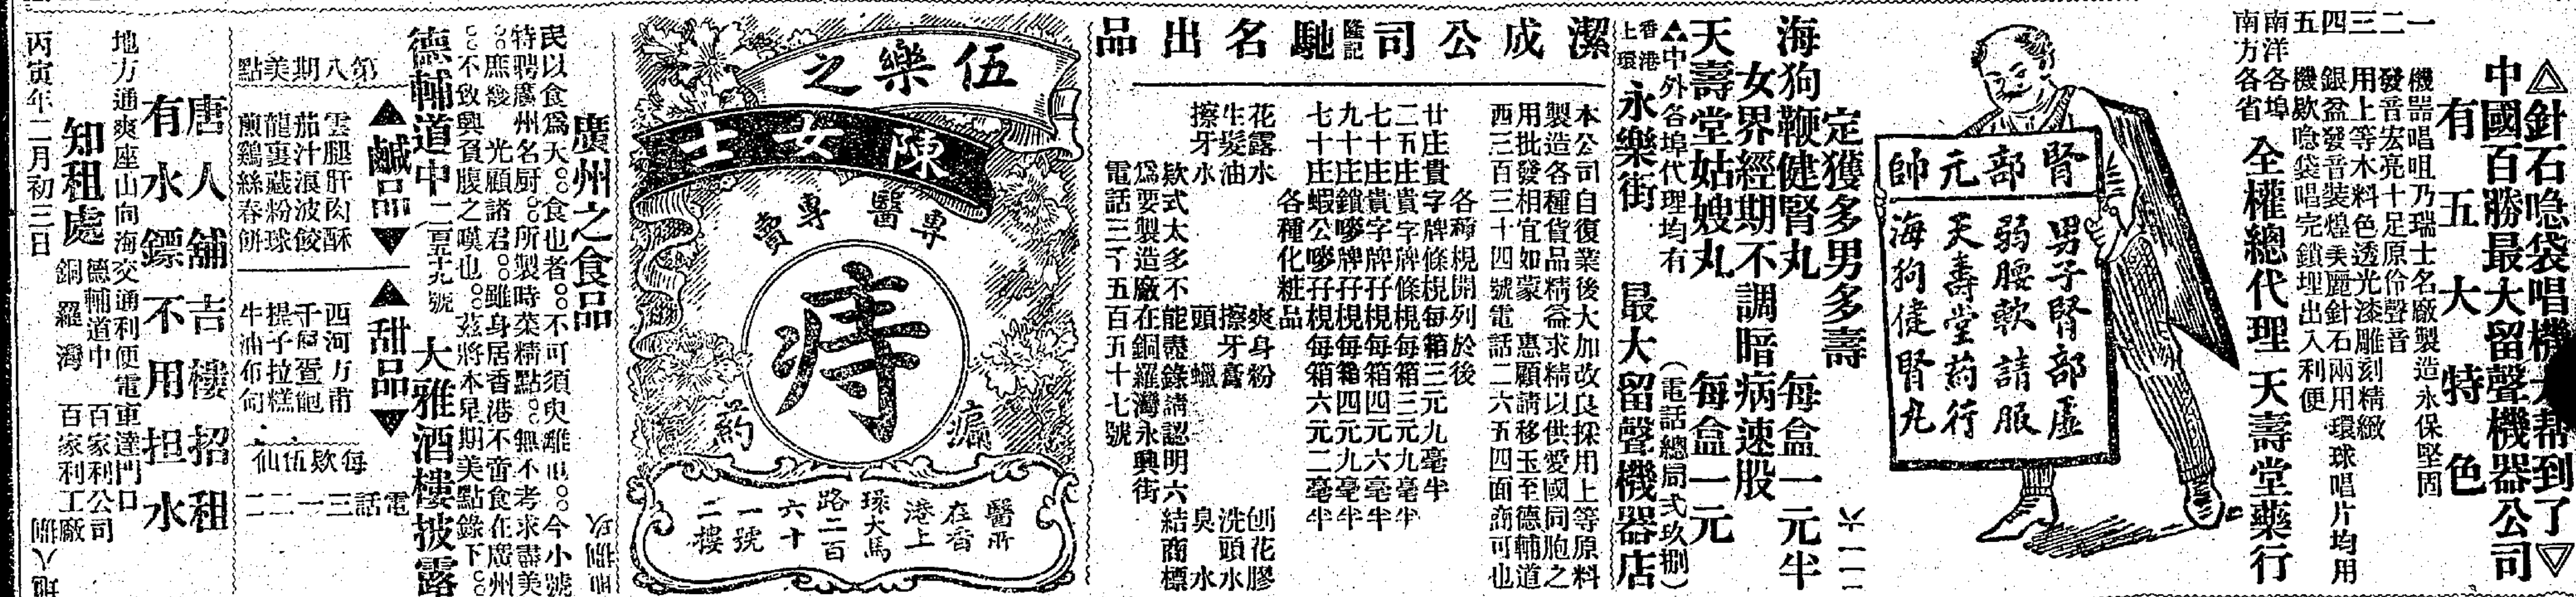 △針石唸袋唱機大帮到了▽
中國百勝最大留聲機器公司
有五大特色
一 機噐唱咀乃瑞士名廠製造永保堅固
二 發音宏亮十足原伶聲音
三 用上等木料色透光漆雕刻精緻
四 銀盆發音裝煌美麗針石兩用環球唱片均用
五 機欵唸袋唱完鎖埋出入利便
南洋各埠
南方各省
全權總代理天壽堂藥行
腎部元帥
男子腎部虛
弱腰軟請服
天壽堂葯行
海狗健腎丸
定獲多男多壽
海狗鞭健腎丸 每盒一元半
女界經期不調暗病速股
天壽堂姑嫂丸 每盒一元
△中外各埠代理均有 (電話總局式玖捌)
香港上環永樂街 最大留聲機器店
潔成公司隆記馳名出品
本公司自復業後大加改良採用上等原料
製造各種貨品精益求精以供愛國同胞之
用批發相宜如蒙 惠顧請移玉至德輔道
西三百三十四號電話二六五四面商可也
各種梘開列於後
廿庄貴字牌條梘每箱三元九毫半
二五庄貴字牌條梘每箱三元九毫半
七十庄貴字牌孖梘每箱四元六毫半
九十庄鎖嘜牌孖梘每箱四元九毫半
七十庄蝦公嘜孖梘每箱六元二毫半
各種化粧品
花露水 爽身粉 刨花膠
生髮油 擦牙膏 洗頭水
擦牙水 頭蠟 臭水
欵式太多不能盡錄請認明六結商標
爲要製造廠在銅羅灣永興街
電話三千五百五十七號
伍樂之
陳女士
專醫專賣
痔
瘡葯
醫所
在香
港上
環大馬
路二百
六十
一號
二樓
廣州之食品
民以食爲天。食也者。不可須臾離也。今小號
特聘廣州名厨。所製時菜精點。無不考求盡美
。庶幾 光顧諸君。雖身居香港不啻食在廣州
。不致興負腹之嘆也。茲將本星期美點錄下。
德輔道中二百五十九號 大雅酒樓披露
▲鹹品▼ ▲甜品▼
第八期美點
雲腿肝肉酥
茄汁濱波餃
龍裏藏粉球
煎鷄絲春餅
西河方甫
千層蛋飽
提子拉糕
牛油布甸
每欵伍仙
電話三一二二
唐人舖吉樓招租
有水鏢不用担水
地方通爽座山向海交通利便電車達門口
知租處
德輔道中 百家利公司
銅羅灣 百家利工廠
丙寅年二月初三日